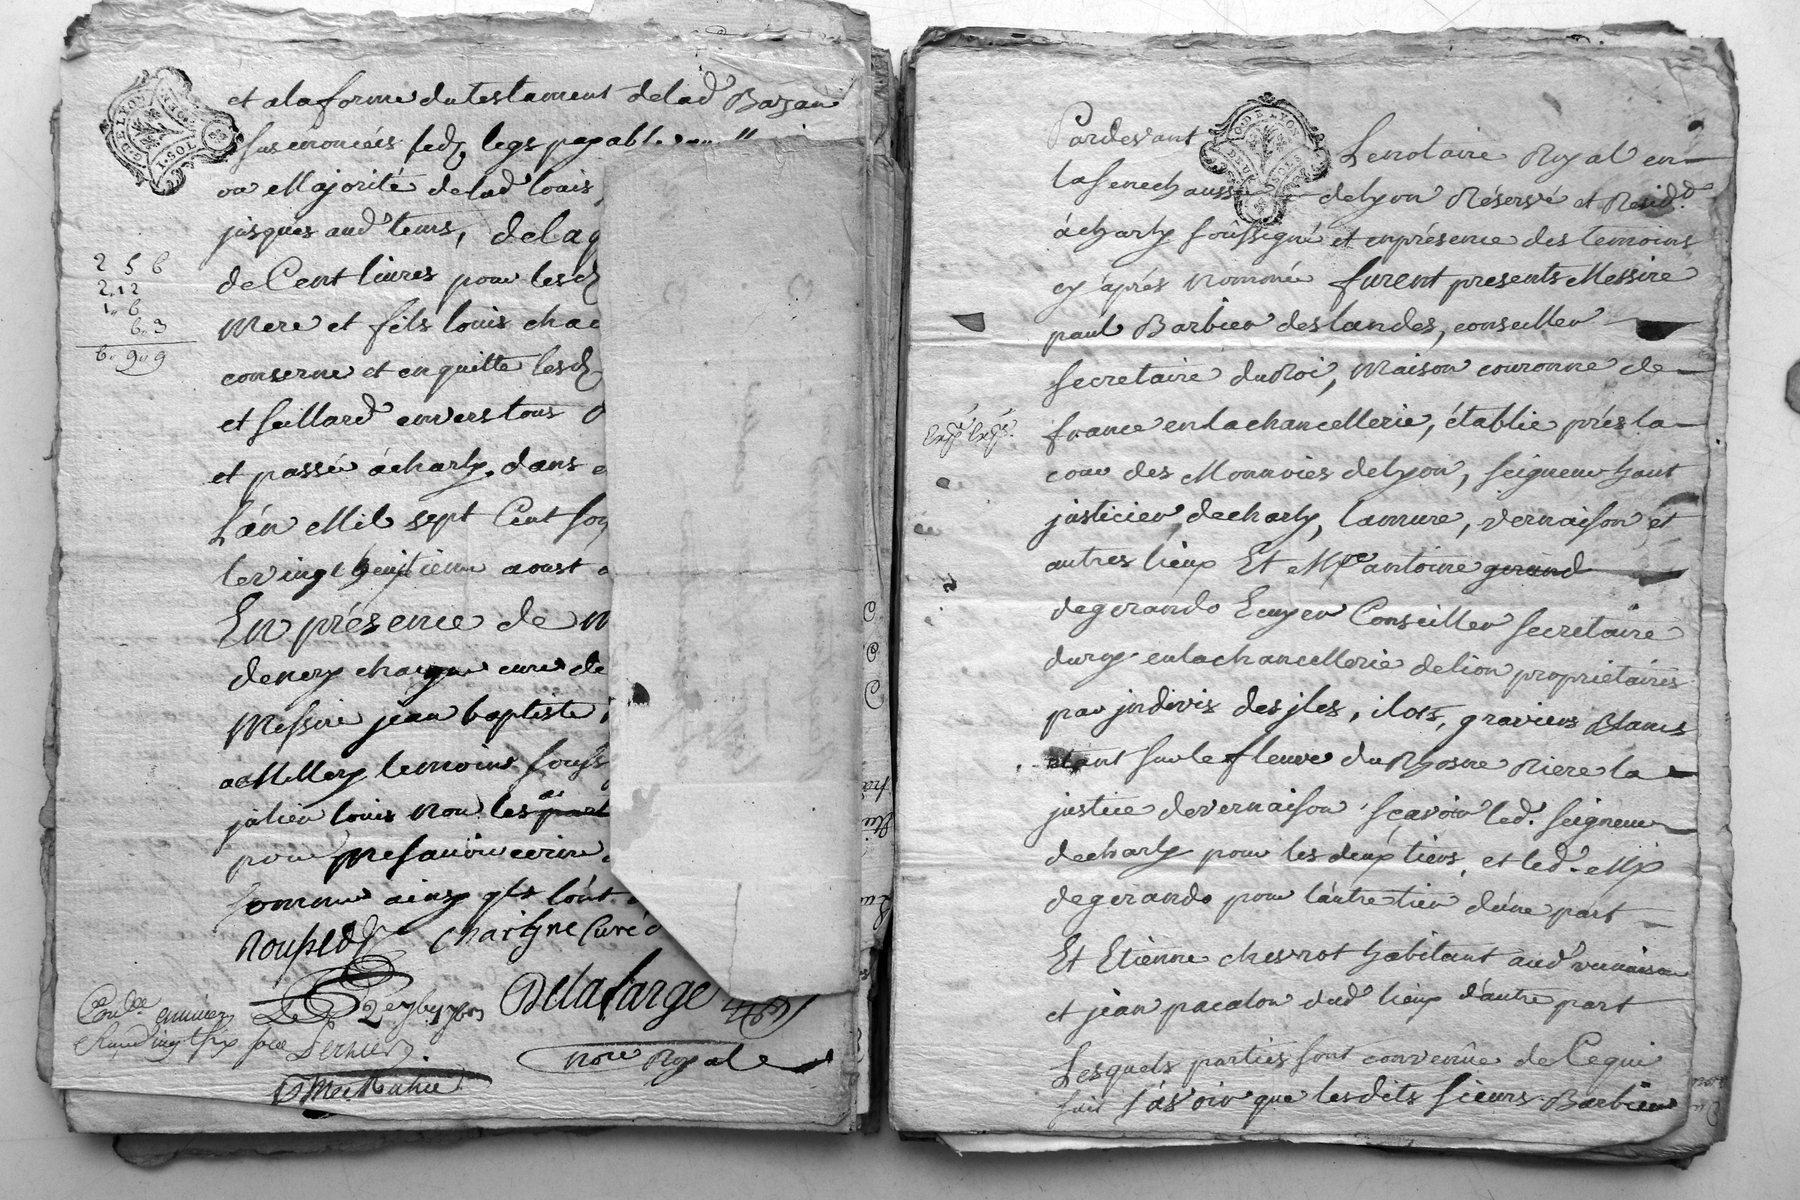 et a la forme du testament de lad Bazan
sus enoncées led legs payable
ou Majorité de lad louis
jusques aud tems, de la q
de Cent livres pour les d
Mere et fils louis chac
conserne et en quitte les d
et Saillard envers tous
et passé à charly dans
L'an Mil sept Cent soi
le vingt huitieme aoust
En présence de M
de nery chaigne curé de
Messire jean baptiste
a Millery temoins souss
julien louis non les part
pour ne savoir ecrire
somme ainsy qls l'ont
chaigne Curé d
Delafarge
Nore Royal
2 5 6
2.12
1. 6
6. 3
6. 9. 9
G. DE LYON
1. SOL
Pardevant Le notaire Royal en
la Senechaussé de lyon Réservé et Resid.d
à charly soussigné et en présence des temoins
cy après nommé furent presents Messire
paul Barbier deslandes, conseiller
secretaire du Roi, Maison couronne de
france en la chancellerie, établie près la
cour des Monnoies de lyon, seigneur haut
justicier de charly, lamure, vernaison et
autres lieux Et Mre antoine gerand
degerando Ecuyer Conseiller secretaire
du roy en la chancellerie de lion proprietaires
par jndivis des jles, ilots, graviers Blancs
etant sur le fleuve du Rhosne Riere la
justice de vernaison sçavoir led. seigneur
de charly pour les deux tiers, et led. Mre
degerando pour l'autre tier d'une part
Et Etienne chevrot habitant aud vernaison
et jean pacalon dud lieux d'autre part
Lesquels parties sont convenûe de Cequi
suit sâvoir que lesdits sieurs Barbier
G. DE LYON
DEUX SOLS